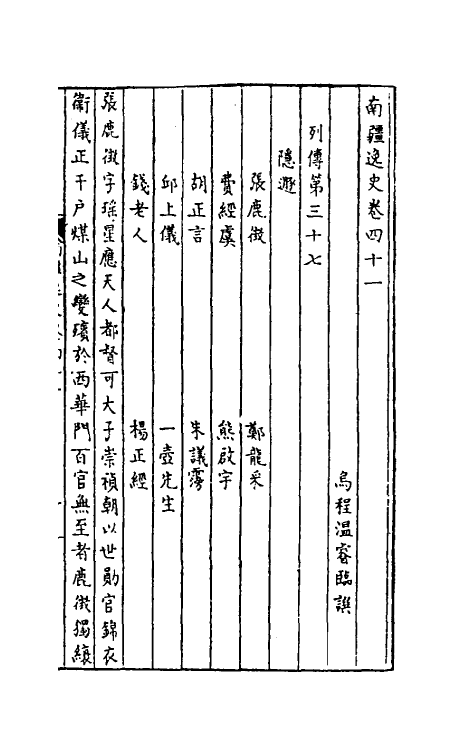 南疆逸史卷四十一
烏程温睿臨譔
列傳第三十七
隱遯
張鹿徵 鄭龍采
費經虞 熊啟宇
胡正言 朱議霶
邱上儀 一壺先生
錢老人 楊正經
張鹿徵字瑤星應天人都督可大子崇禎朝以世勛官錦衣
衞儀正千戶煤山之變殯於西華門百官無至者鹿徵獨縗